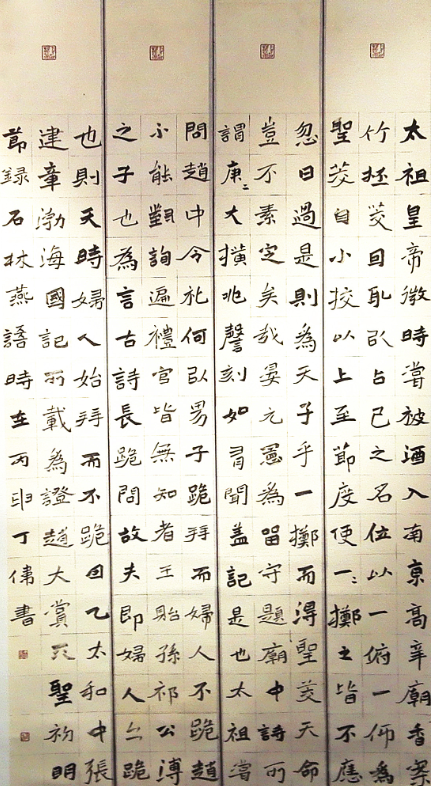 太祖皇帝微時嘗被酒入南京高辛廟香案
竹抔茭因取以占己之名位以一俯一仰為
聖茭自小挍以上至節度使一〻擲之皆不應
忽曰過是則為天子乎一擲而淂聖茭天命
豈不素定矣哉晏元憲為留守題廟中詩所
謂庚〻大横兆謦刻如有聞蓋記是也太祖嘗
問趙中令礼何以男子跪拜而婦人不跪趙
不能對詢遍禮官皆無知者王貽孫祁公溥
之子也為言古詩長跪問故夫即婦人亦跪
也則天時婦人始拜而不跪因乙太和中張
建章渤海國記所載為證趙大賞天聖初明
節録石林燕語時在丙申丁偉書